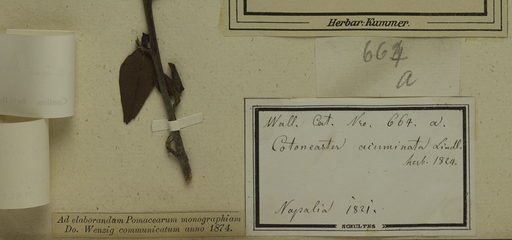 Herbar: Kummer.
664
a
Wall. Cat. Nro. 664. a.
Cotoneaster acuminata Lindl.
herb. 1824.
Napalia 1821.
SCHULTES
Ad elaborandam Pomacearum monographiam
Do. Wenzig communicatum anno 1874.